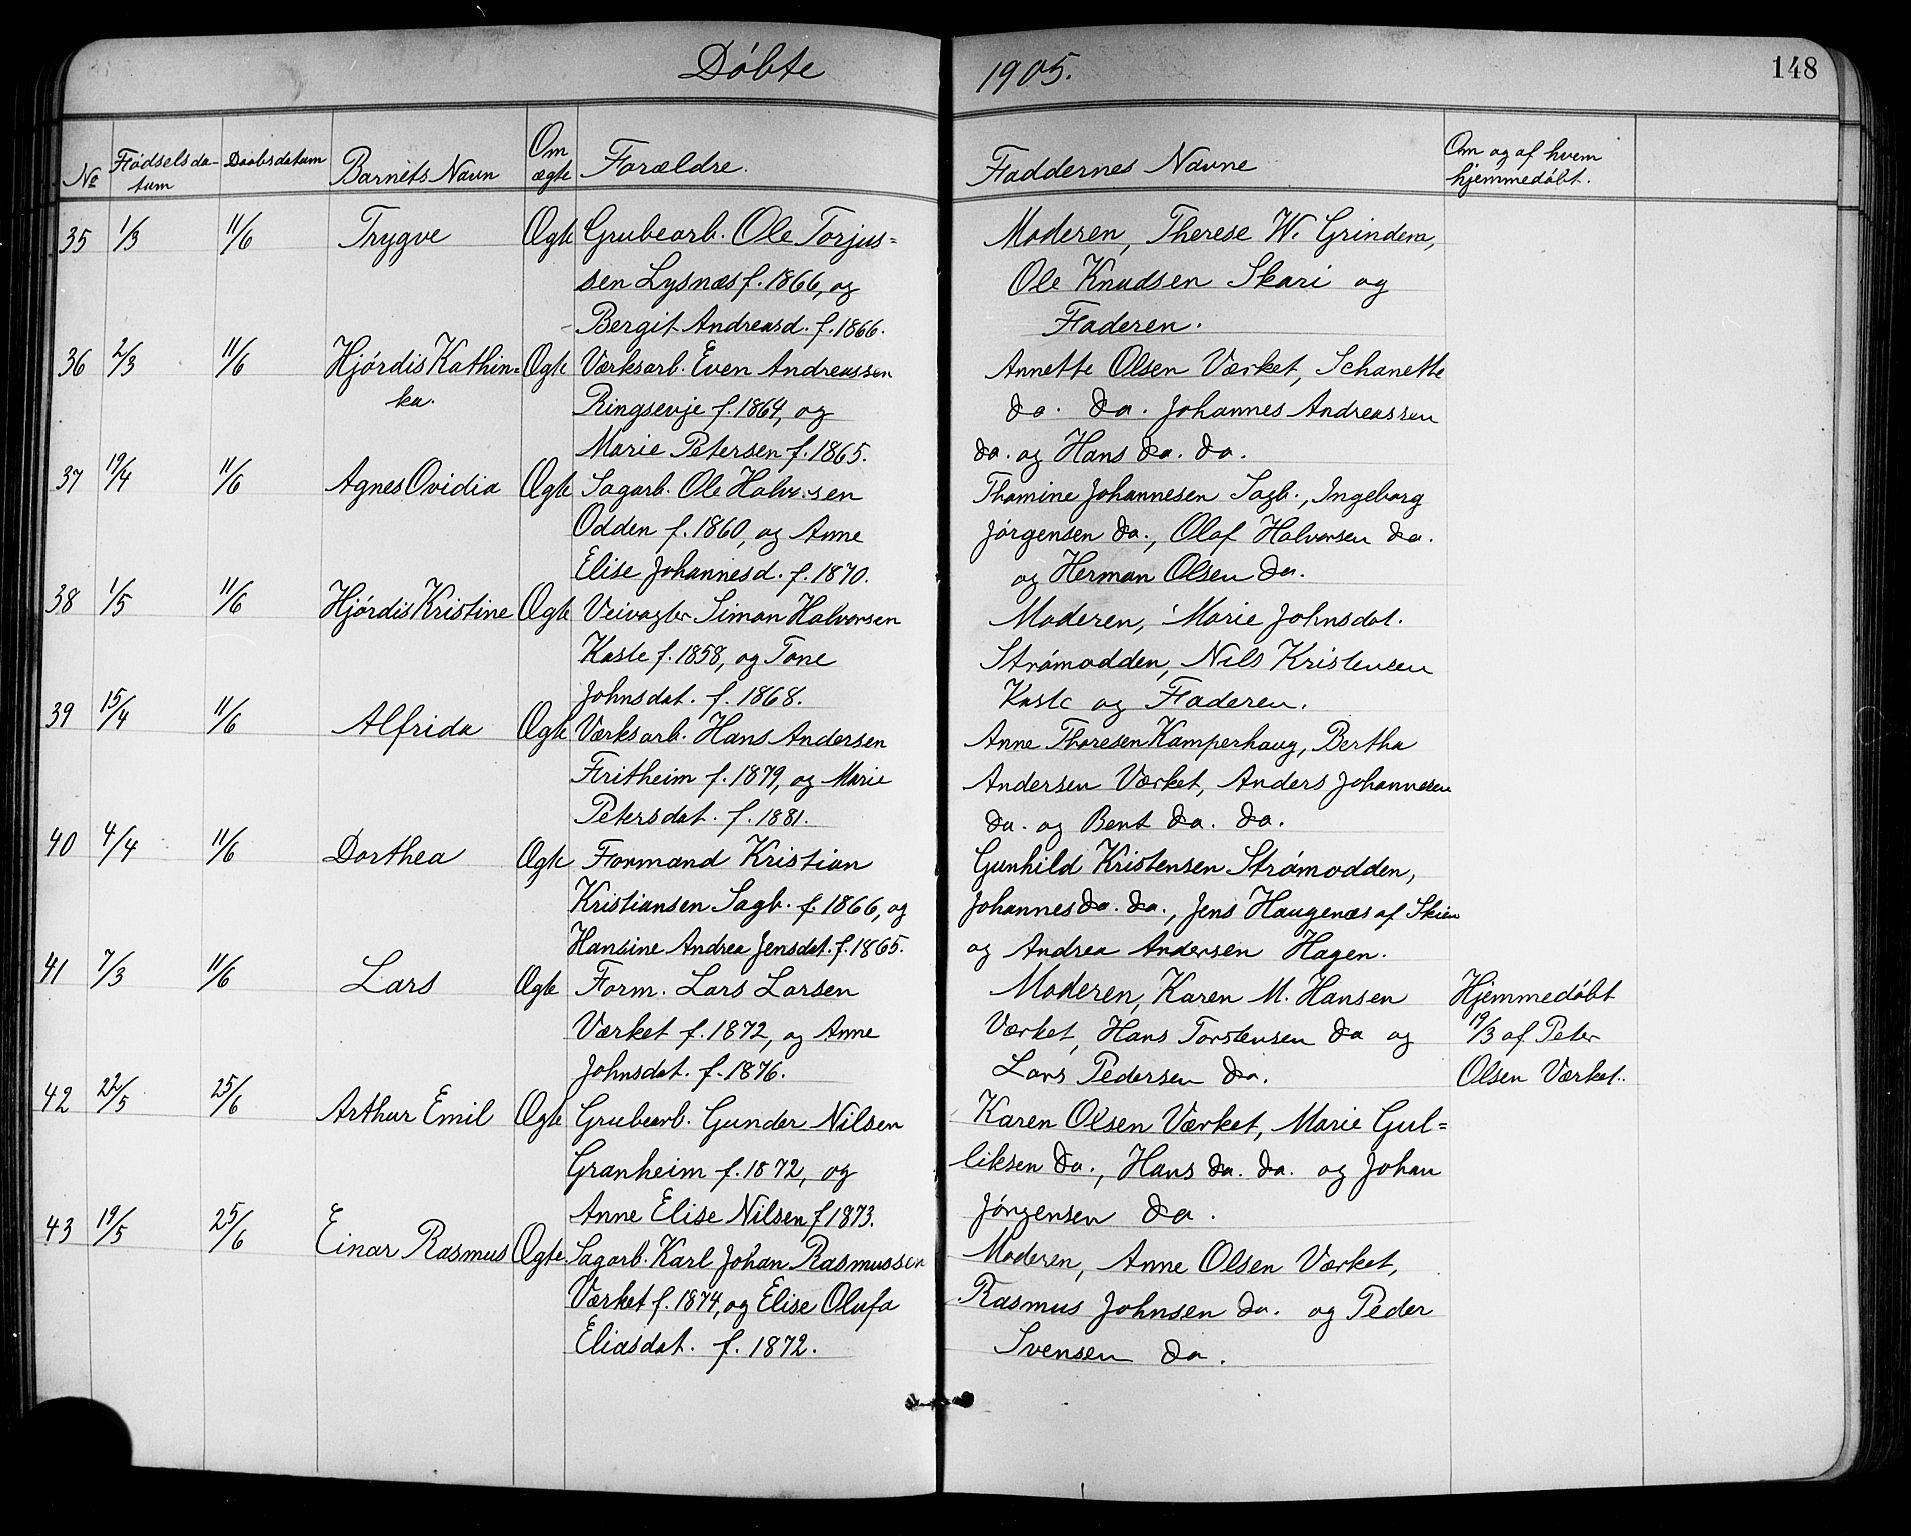 Døbte 1905. 148
No Fødselsda- Daabsdatum Barnets Navn Om Forældre. Faddernes Navne Om og af hvem
tum ægte hjemmedøbt.
35 1/3 11/6 Trygve Ægte Grubearb. Ole Torjus= Moderen, Therese W. Grindem,
sen Lysnæs f. 1866, og Ole Knudsen Skari og
Bergit Andreasd. f. 1866. Faderen.
36 2/3 11/6 Hjørdis Kathin= Ægte Værksarb. Even Andreassen Annette Olsen Værket, Schanette
ka. Ringsevje f. 1864, og do. do. Johannes Andreassen
Marie Petersen f. 1865. do. og Hans do. do.
37 19/4 11/6 Agnes Ovidia Ægte Sagarb. Ole Halvorsen Thomine Johannesen Sagb., Ingeborg
Odden f. 1860, og Anne Jørgensen do., Olaf Halvorsen do.
Elise Johannesd. f. 1870. og Herman Olsen do.
38 1/5 11/6 Hjørdis Kristine Ægte Veivogter Simon Halvorsen Moderen, Marie Johnsdat.
Kaste f. 1858, og Tone Strømodden, Nils Kristensen
Johnsdat. f. 1868. Kaste og Faderen.
39 15/4 11/6 Alfrida Ægte Værksarb. Hans Andersen Anne Thoresen Kamperhaug, Bertha
Fritheim f. 1879, og Marie Andersen Værket, Anders Johannesen
Petersdat. f. 1881. do. og Bent do. do.
40 4/4 11/6 Dorthea Ægte Formand Kristian Gunhild Kristensen Strømodden,
Kristiansen Sagb. f. 1866, og Johannes do. do., Jens Haugenæs af Skien
Hansine Andrea Jensdat. f. 1865. og Andrea Andersen Hagen.
41 7/3 11/6 Lars Ægte Form. Lars Larsen Moderen, Karen M. Hansen Hjemmedøbt
Værket f. 1872, og Anne Værket, Hans Torstensen do og 19/3 af Peter
Johnsdat. f. 1876. Lars Pedersen do. Olsen Værket.
42 22/5 25/6 Arthur Emil Ægte Grubearb. Gunder Nilsen Karen Olsen Værket, Marie Gul=
Granheim f. 1872, og liksen do., Hans do. do. og Johan
Anne Elise Nilsen f 1873. Jørgensen do.
43 19/5 25/6 Einar Rasmus Ægte. Sagarb. Karl Johan Rasmussen Moderen, Anne Olsen Værket,
Værket f. 1874, og Elise Olufa Rasmus Johnsen do. og Peder
Eliasdat. f. 1872. Svensen do.